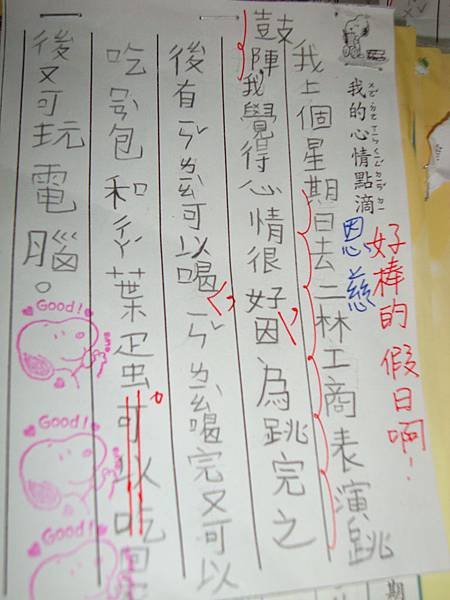 好棒的假日啊!
我的心情點滴
恩慈
我上個星期日去二林工商表演跳
鼓陣,我覺得心情很好,因為跳完之
後有可以喝喝完又可以
吃包和ㄔㄚˊ葉蛋。可以吃
後又可玩電腦。
Good!
Good!
Good!